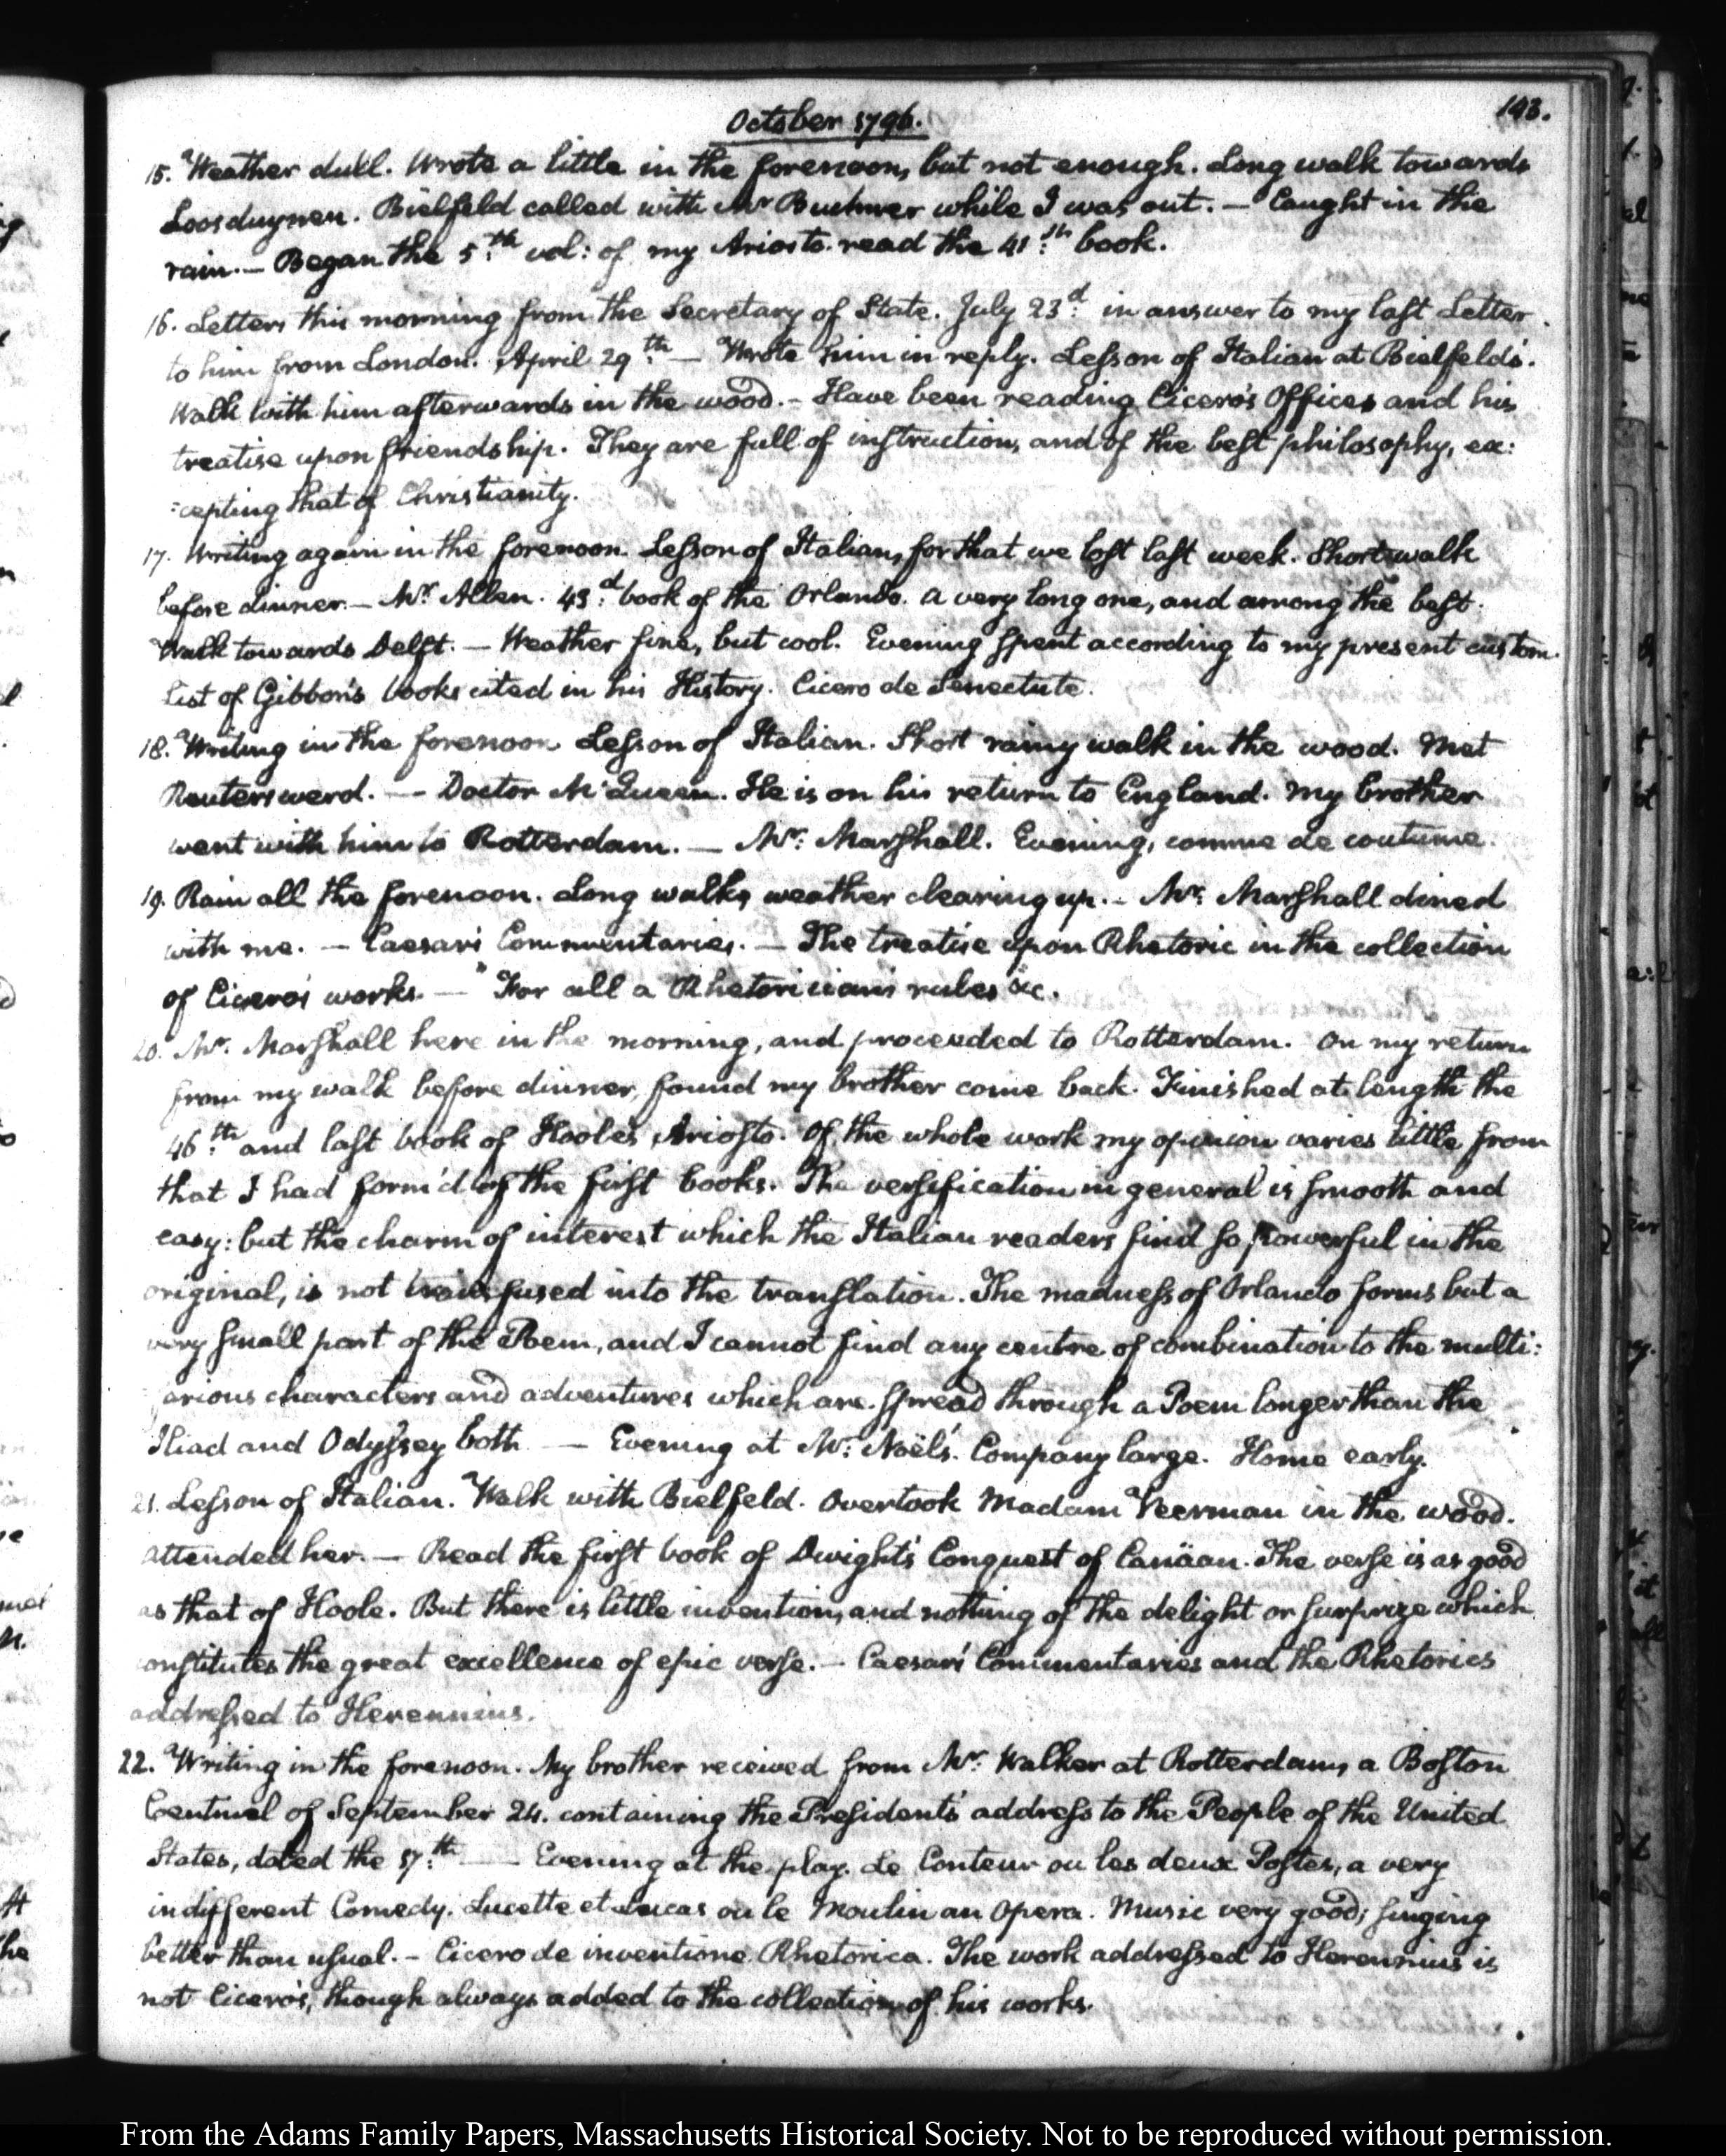 October 1796.
193.
15. Weather dull. Wrote a little in the forenoon, but not enough. Long walk towards
Loosduynen. Bielfeld called with Mr Buchner while I was out. — Caught in the
rain. — Began the 5.th vol: of my Ariosto. read the 41.st book.
16. Letters this morning from the Secretary of State. July 23.d in answer to my last Letter
to him from London. April 29.th — Wrote him in reply. Lesson of Italian at Bielfeld's.
Walk with him afterwards in the wood. — Have been reading Cicero's Offices and his
treatise upon friendship. They are full of instruction, and of the best philosophy, ex:
:cepting that of Christianity.
17. Writing again in the forenoon. Lesson of Italian, for that we lost last week. Short walk
before dinner. — Mr. Allen. 43.d book of the Orlando. a very long one, and among the best.
Walk towards Delft. — Weather fine, but cool. Evening spent according to my present custom.
List of Gibbon's books cited in his History. Cicero de Senectute.
18. Writing in the forenoon Lesson of Italian. Short rainy walk in the wood. Met
Reuterswerd. — Doctor McQueen. He is on his return to England. My brother
went with him to Rotterdam. — Mr: Marshall. Evening, comme de coutume.
19. Rain all the forenoon. Long walk, weather clearing up. — Mr: Marshall dined
with me. — Caesar's Commentaries. — The treatise upon Rhetoric in the collection
of Cicero's works. — "For all a Rhetorician's rules &c.
20. Mr. Marshall here in the morning, and proceeded to Rotterdam. On my return
from my walk before dinner, found my brother come back. Finished at length the
46.th and last book of Hoole's Ariosto. Of the whole work my opinion varies little from
that I had form'd of the first books. The versification in general is smooth and
easy: but the charm of interest which the Italian readers find so powerful in the
original, is not transfused into the translation. The madness of Orlando forms but a
very small part of the Poem, and I cannot find any centre of combination to the multi:
:farious characters and adventures which are spread through a Poem longer than the
Iliad and Odyssey both — Evening at Mr: Noël's. Company large. Home early.
21. Lesson of Italian. Walk with Bielfeld. Overtook Madam Veerman in the wood.
attended her. — Read the first book of Dwight's Conquest of Canäan. The verse is as good
as that of Hoole. But there is little invention, and nothing of the delight or surprize which
constitutes the great excellence of epic verse. — Caesar's Commentaries and the Rhetorics
addressed to Herennius.
22. Writing in the forenoon. My brother received from Mr: Walker at Rotterdam, a Boston
Centinel of September 24. containing the President's address to the People of the United
States, dated the 17.th — Evening at the play. Le Conteur ou les deux Postes, a very
indifferent Comedy. Lucette et Lucas ou le Moulin an Opera. Music very good; singing
better than usual. — Cicero de inventione Rhetorica. The work addressed to Herennius is
not Cicero's, though always added to the collection of his works.
From the Adams Family Papers, Massachusetts Historical Society. Not to be reproduced without permission.